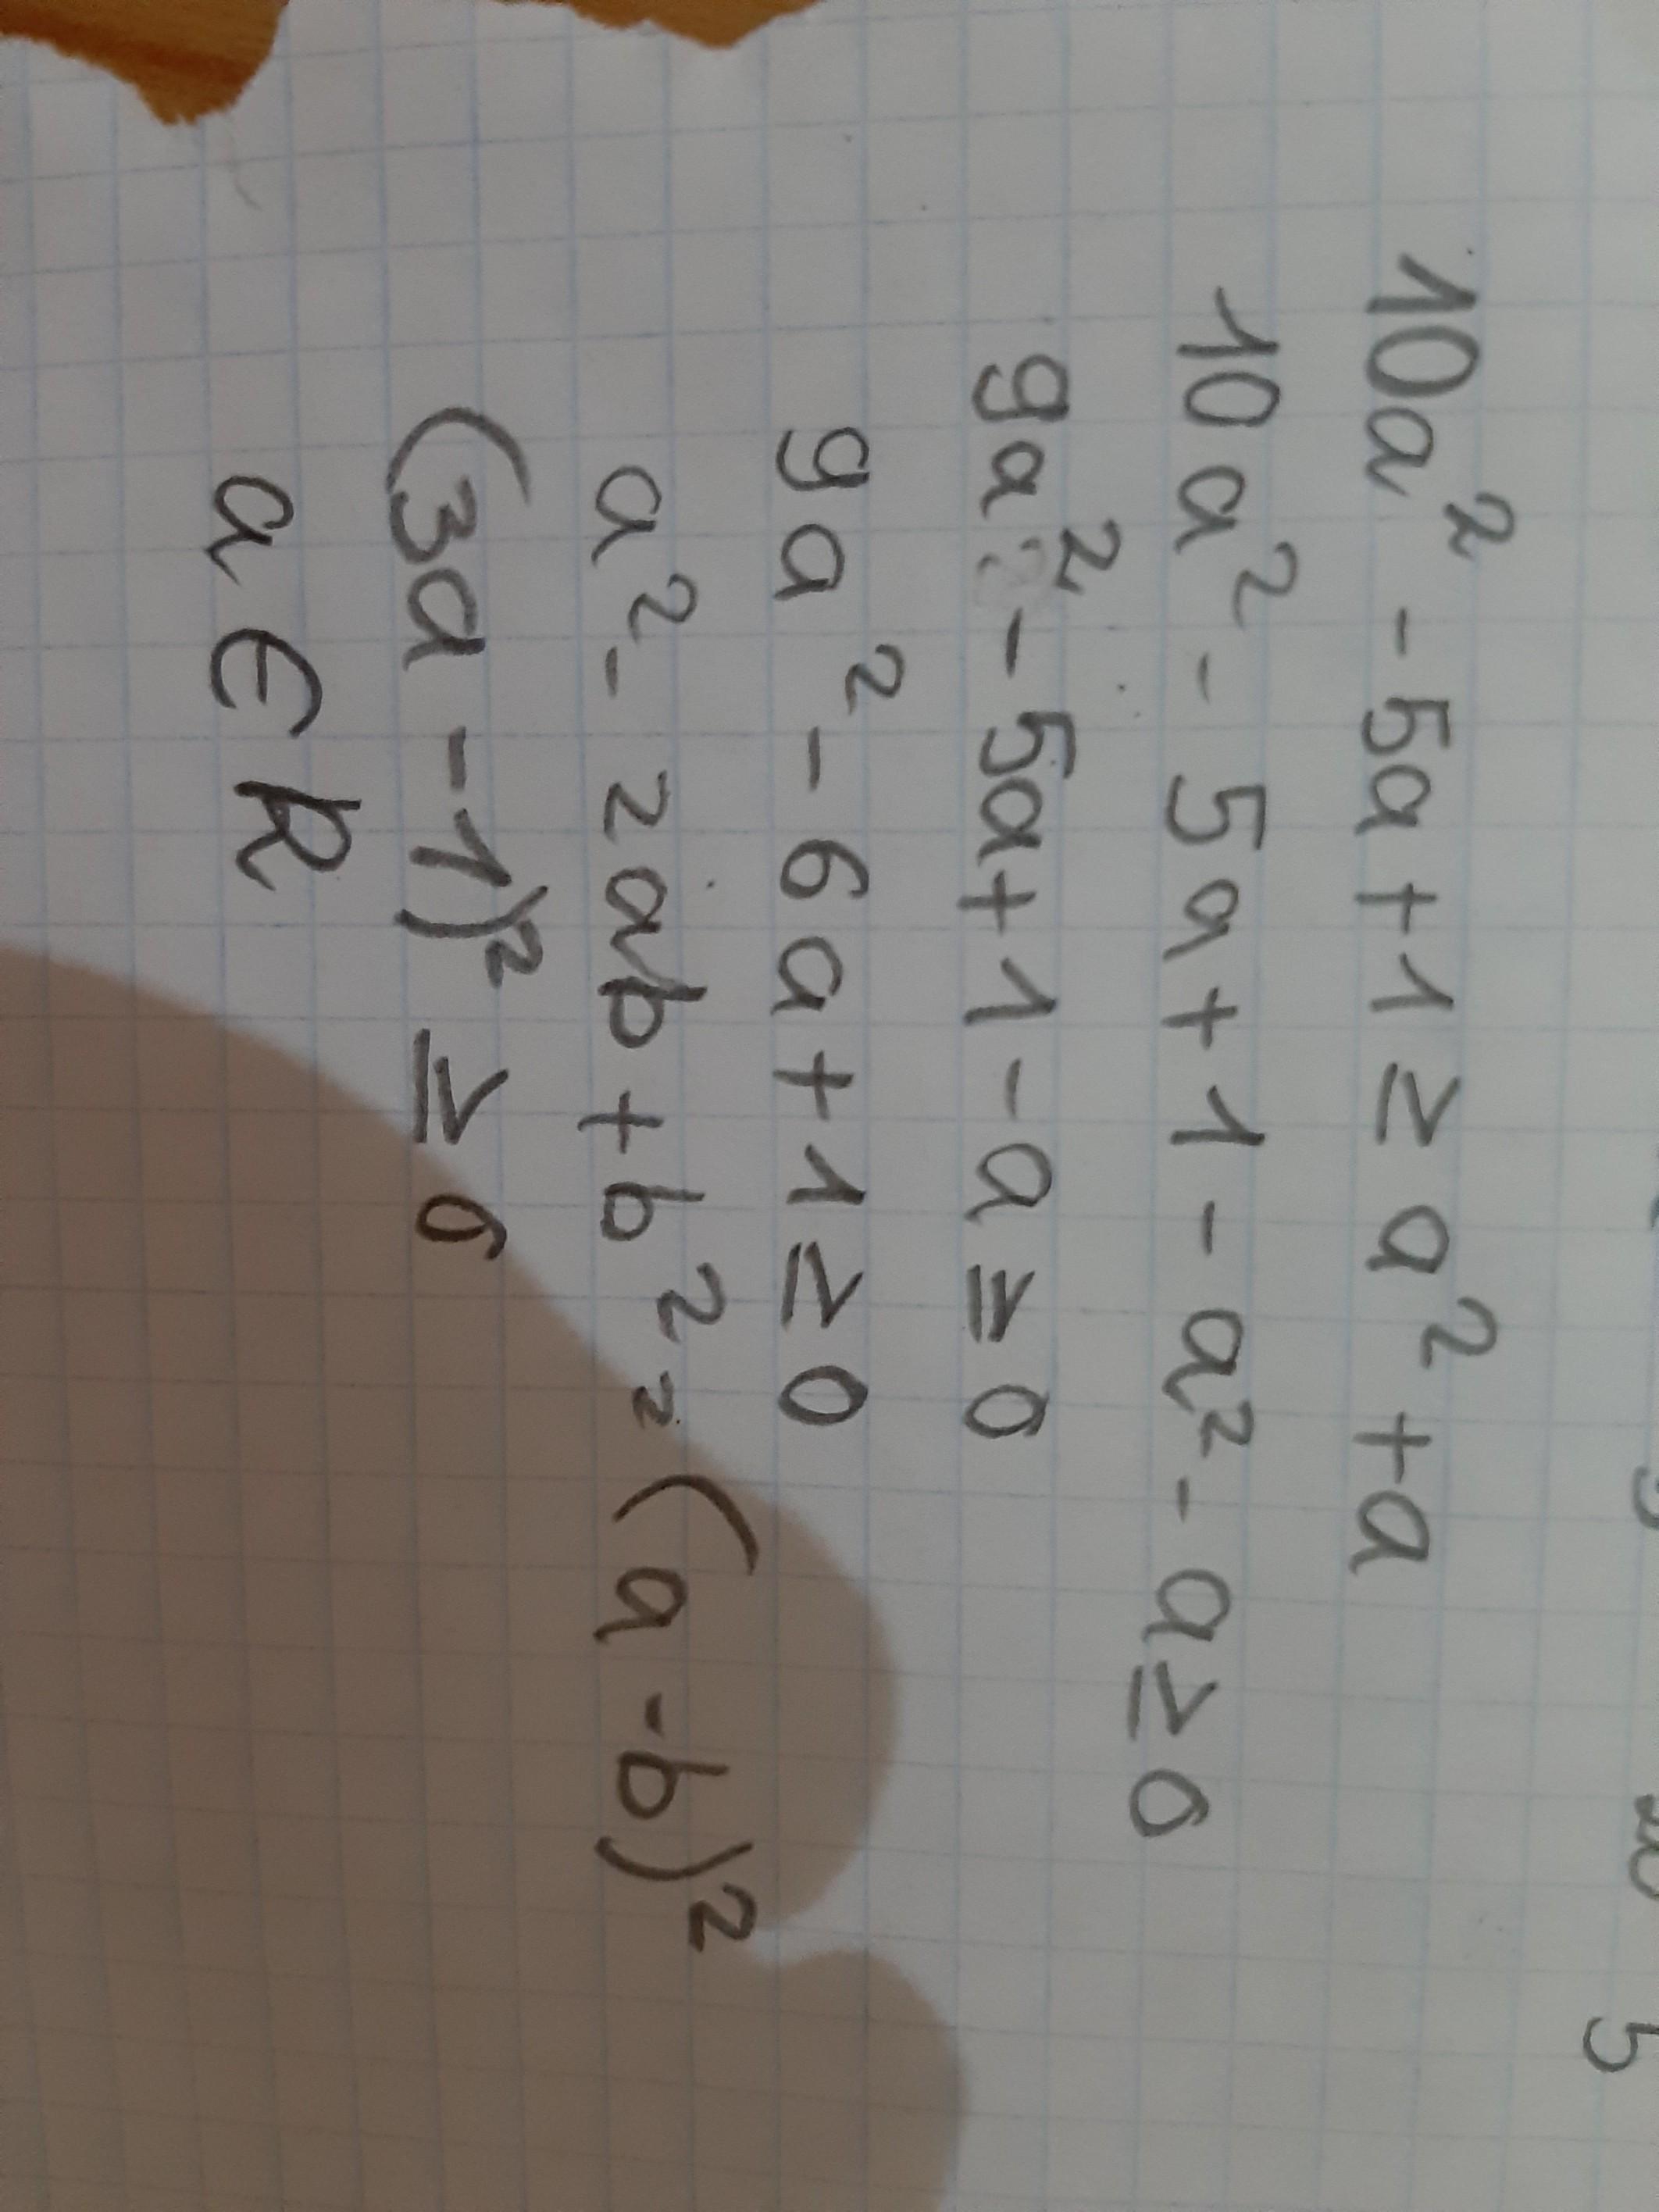 10a² - 5a + 1 ≥ a² + a
10a² - 5a + 1 - a² - a ≥ 0
9a² - 5a + 1 - a ≥ 0
9a² - 6a + 1 ≥ 0
a² - 2ab + b² = (a - b)²
(3a - 1)² ≥ 0
a ∈ R